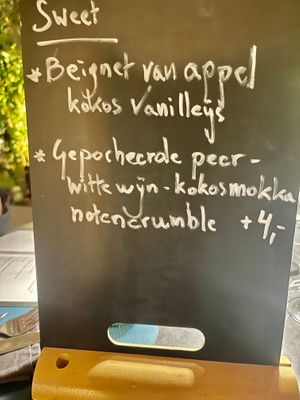 Sweet
* Beignet van appel
kokos vanilleijs
* Gepocheerde peer -
witte wijn - kokosmokka
notencrumble +4,-